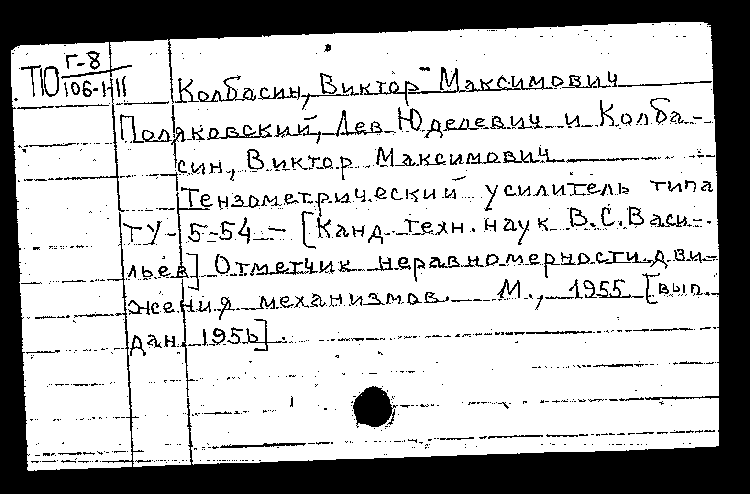 Г-8
ТЮ 106-1411
Колбасин, Виктор Максимович
Поляковский, Лев Юделевич и Колба-
син, Виктор Максимович
Тензометрический усилитель типа
ТУ-5-54 — [Канд. техн. наук В.С. Васи-
льев] Отметчик неравномерности дви-
жения механизмов. М., 1955 [вып.
дан. 1956].